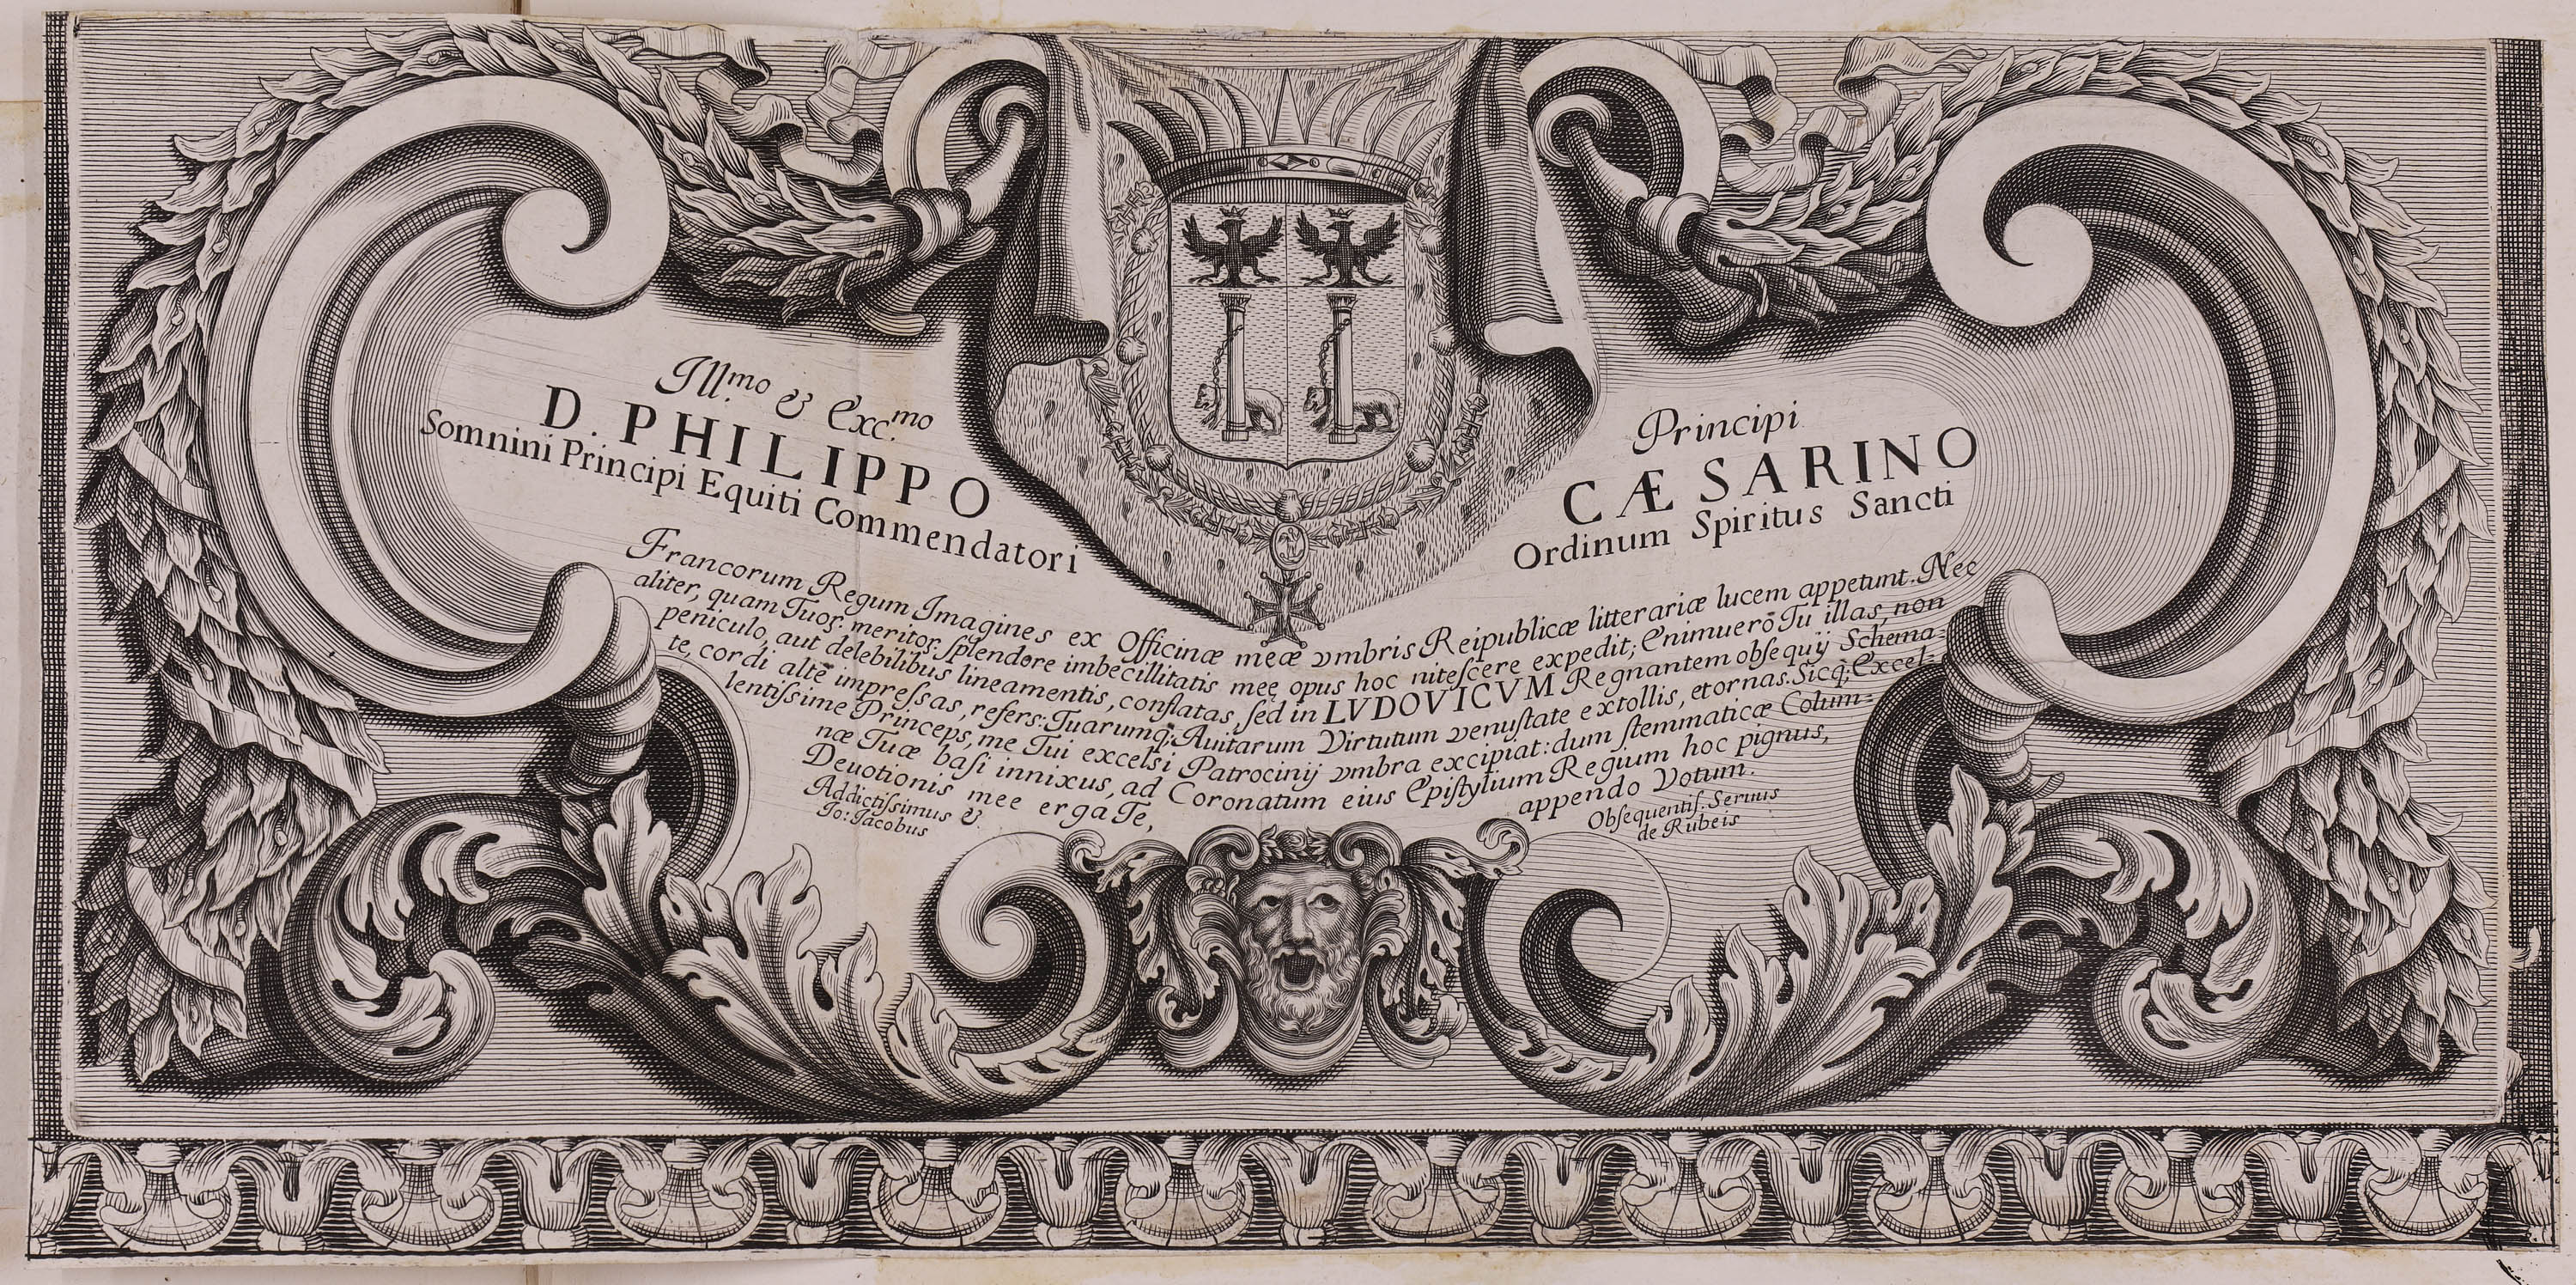 Ill.mo & Exc.mo Principi
D. PHILIPPO CÆSARINO
Somnini Principi Equiti Commendatori Ordinum Spiritus Sancti
Francorum Regum Imagines ex Officinæ meæ vmbris Reipublicæ litterariæ lucem appetunt. Nec
aliter, quam Tuor. meritor. splendore imbecillitatis meę opus hoc nitescere expedit; Enimuerò Tu illas, non
peniculo, aut delebilibus lineamentis, conflatas, sed in LVDOVICVM Regnantem obsequij Schema-
te, cordi altè impressas, refers: Tuarumq; Auitarum Virtutum venustate extollis, et ornas. Sicq; Excel-
lentissime Princeps, me Tui excelsi Patrocinij vmbra excipiat: dum stemmaticæ Colum-
næ Tuæ basi innixus, ad Coronatum eius Epistylium Regium hoc pignus,
Deuotionis meę erga Te, appendo Votum.
Addictissimus & Obsequentis. Seruus
Io: Jacobus de Rubeis